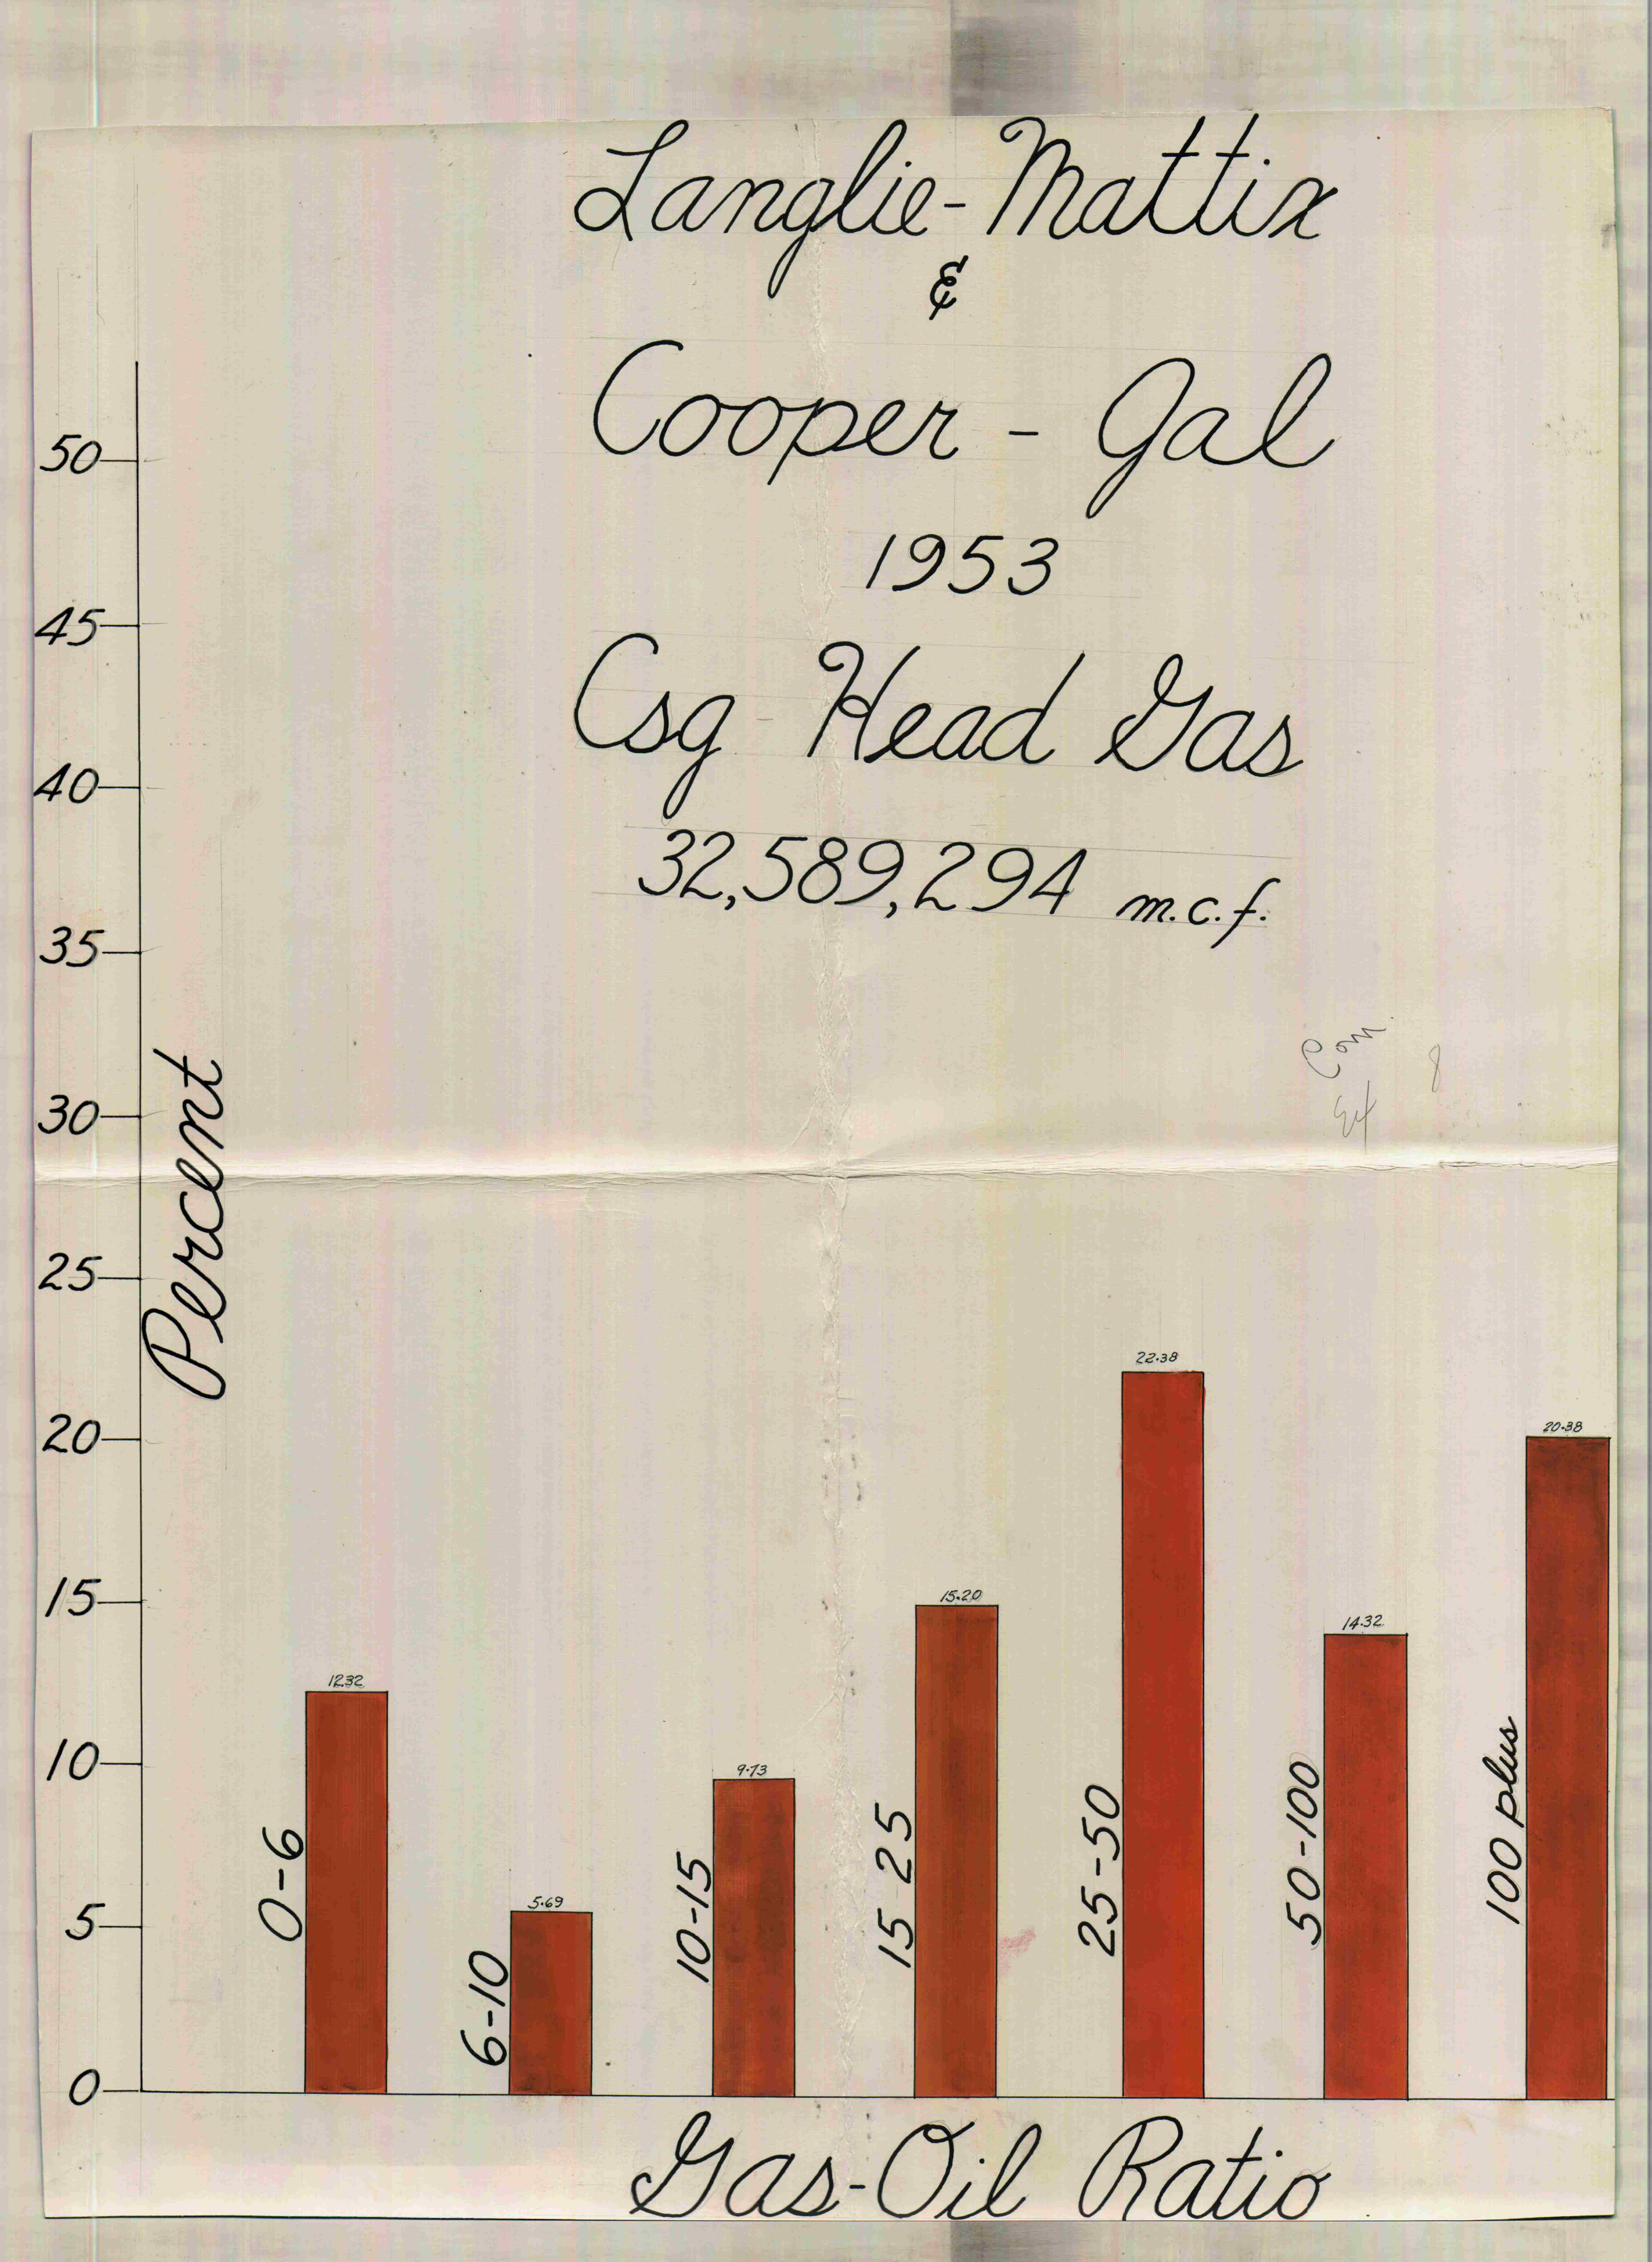 Langlie-Mattix
&
Cooper - Jal
1953
Csg Head Gas
32,589,294 m.c.f.
Com.
Ex 8
Percent
50
45
40
35
30
25
20
15
10
5
0
12.32
5.69
9.73
15.20
22.38
14.32
20.38
0-6
6-10
10-15
15 25
25-50
50-100
100 plus
Gas-Oil Ratio